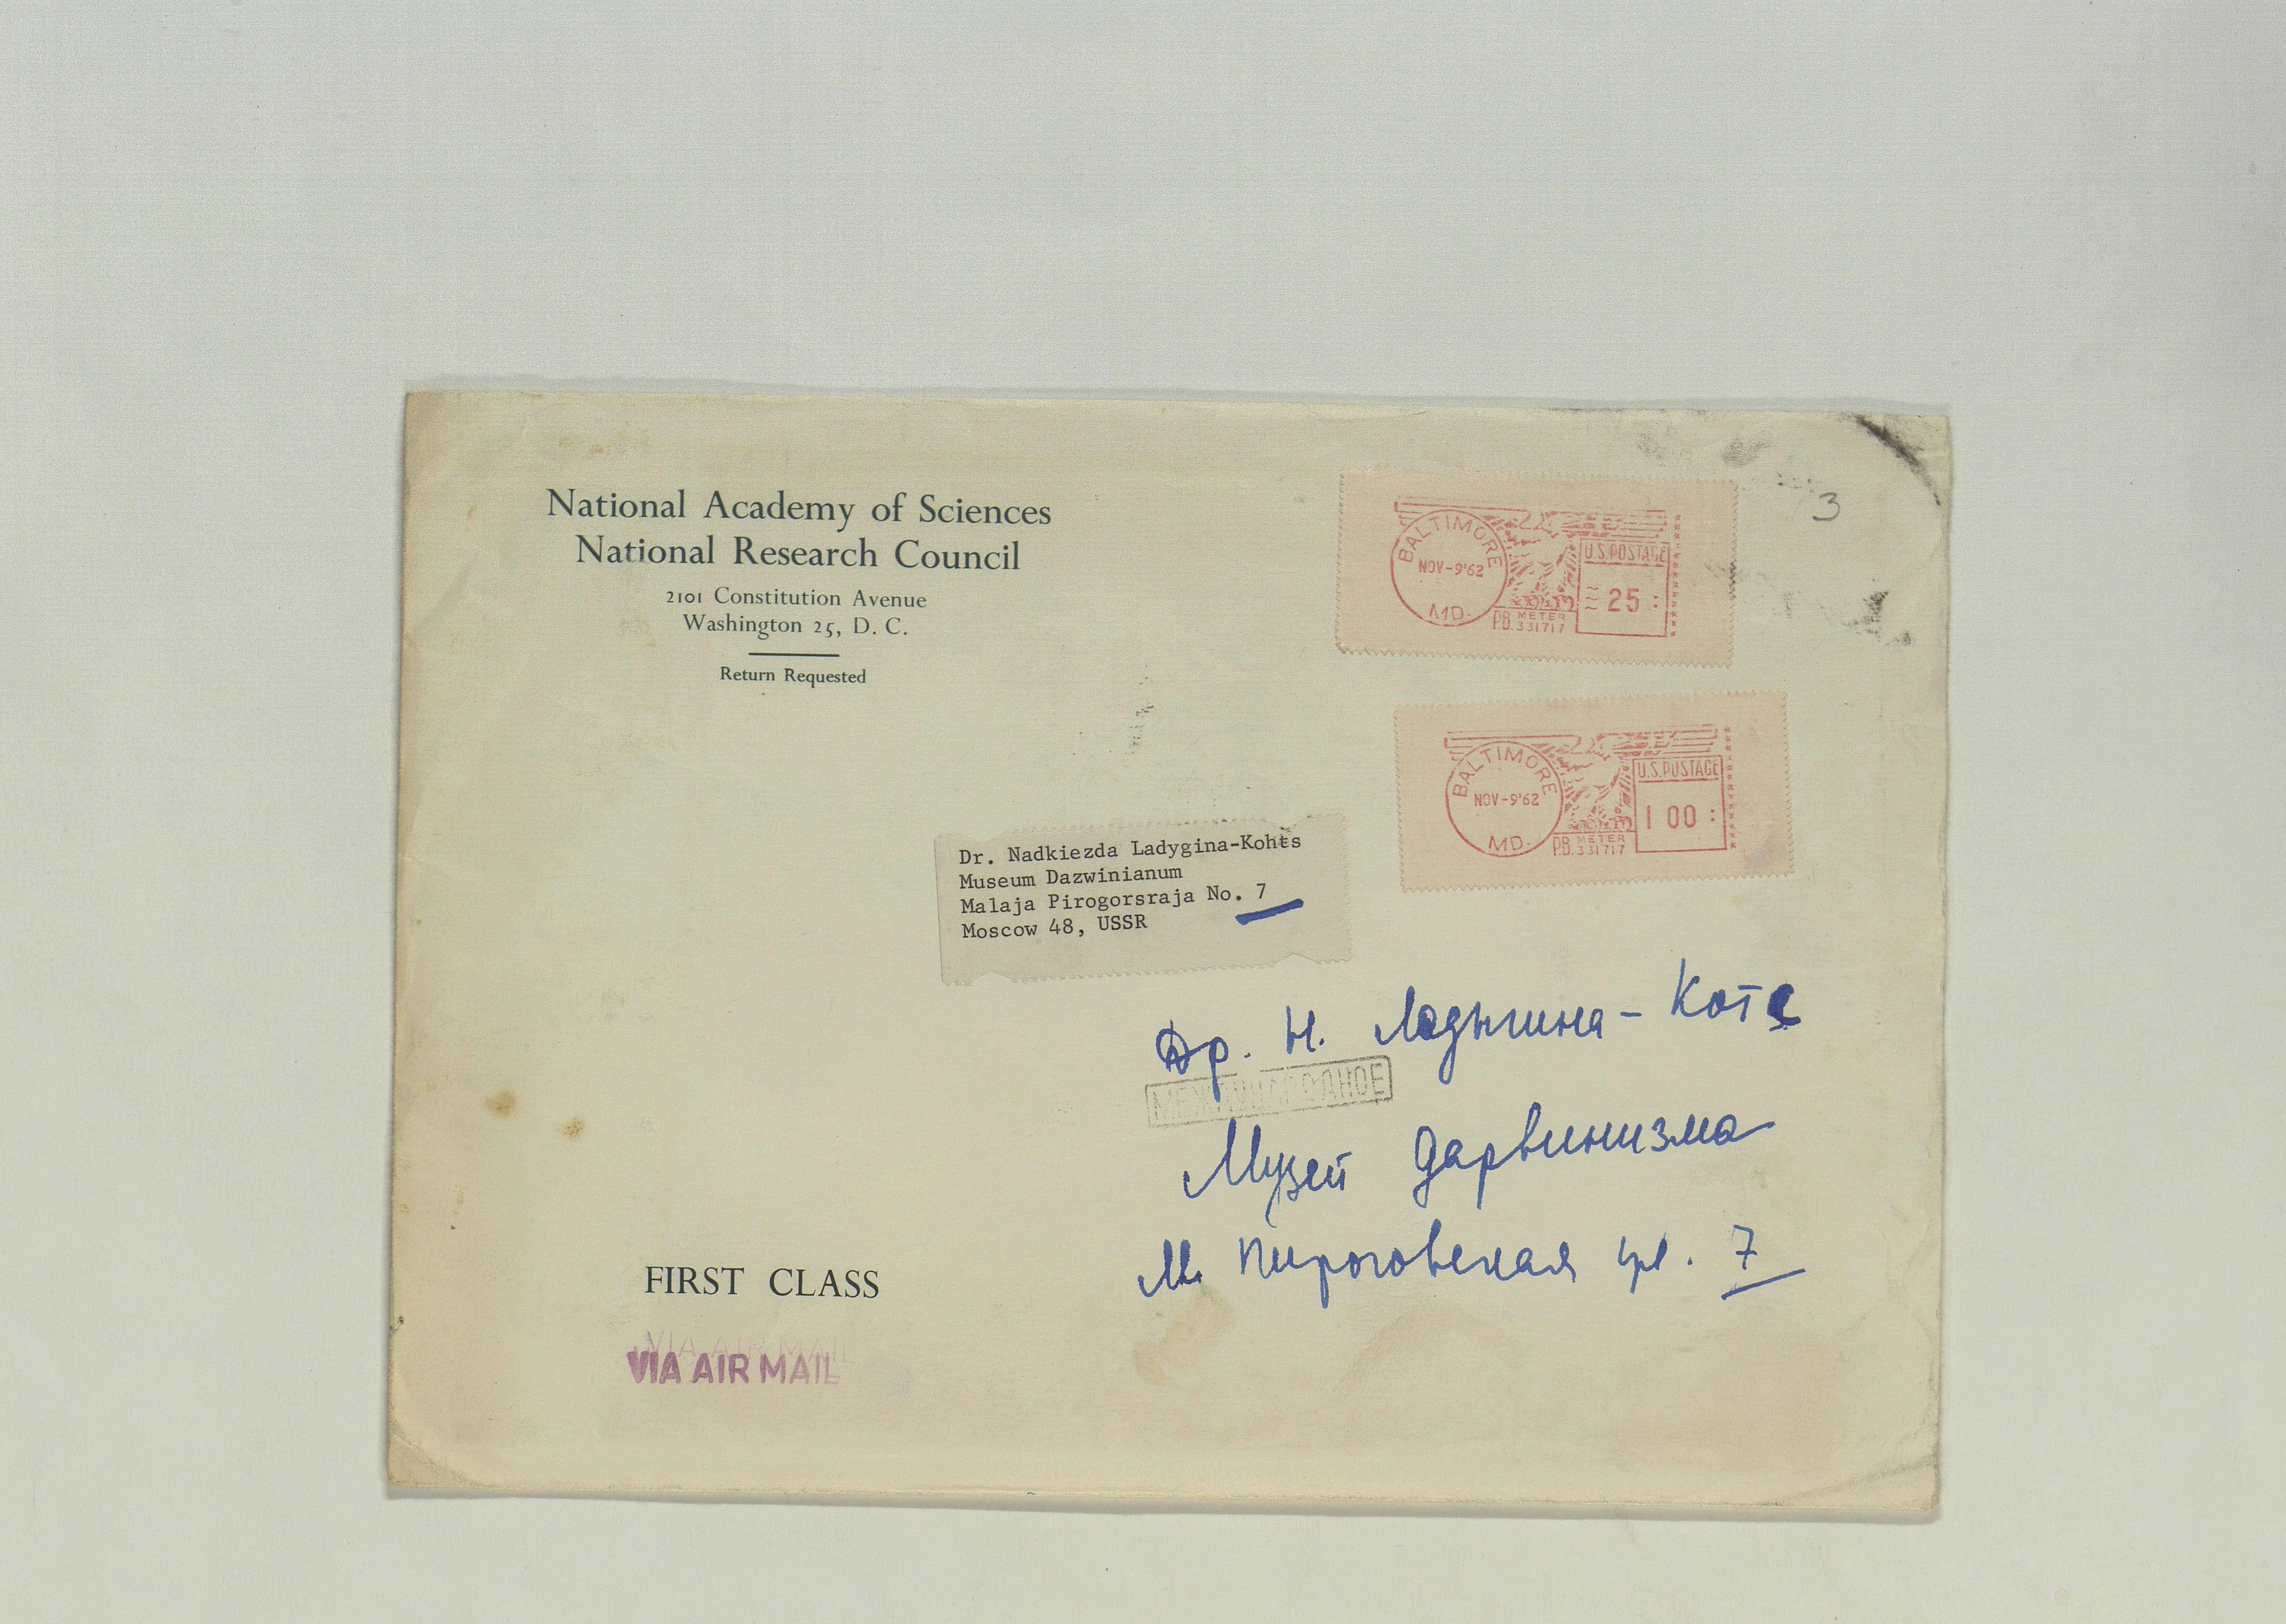 National Academy of Sciences
National Research Council
2101 Constitution Avenue
Washington 25, D. C.
Return Requested
3
BALTIMORE
NOV-9'62
MD.
P.B. METER
331717
U.S. POSTAGE
25
BALTIMORE
NOV-9'62
MD.
P.B. METER
331717
U.S. POSTAGE
1 00
Dr. Nadkiezda Ladygina-Kohts
Museum Dazwinianum
Malaja Pirogorsraja No. 7
Moscow 48, USSR
Др. Н. Ладыгина-Котс
МЕЖДУНАРОДНОЕ
Музей дарвинизма
М. Пироговская ул. 7
FIRST CLASS
VIA AIR MAIL
VIA AIR MAIL